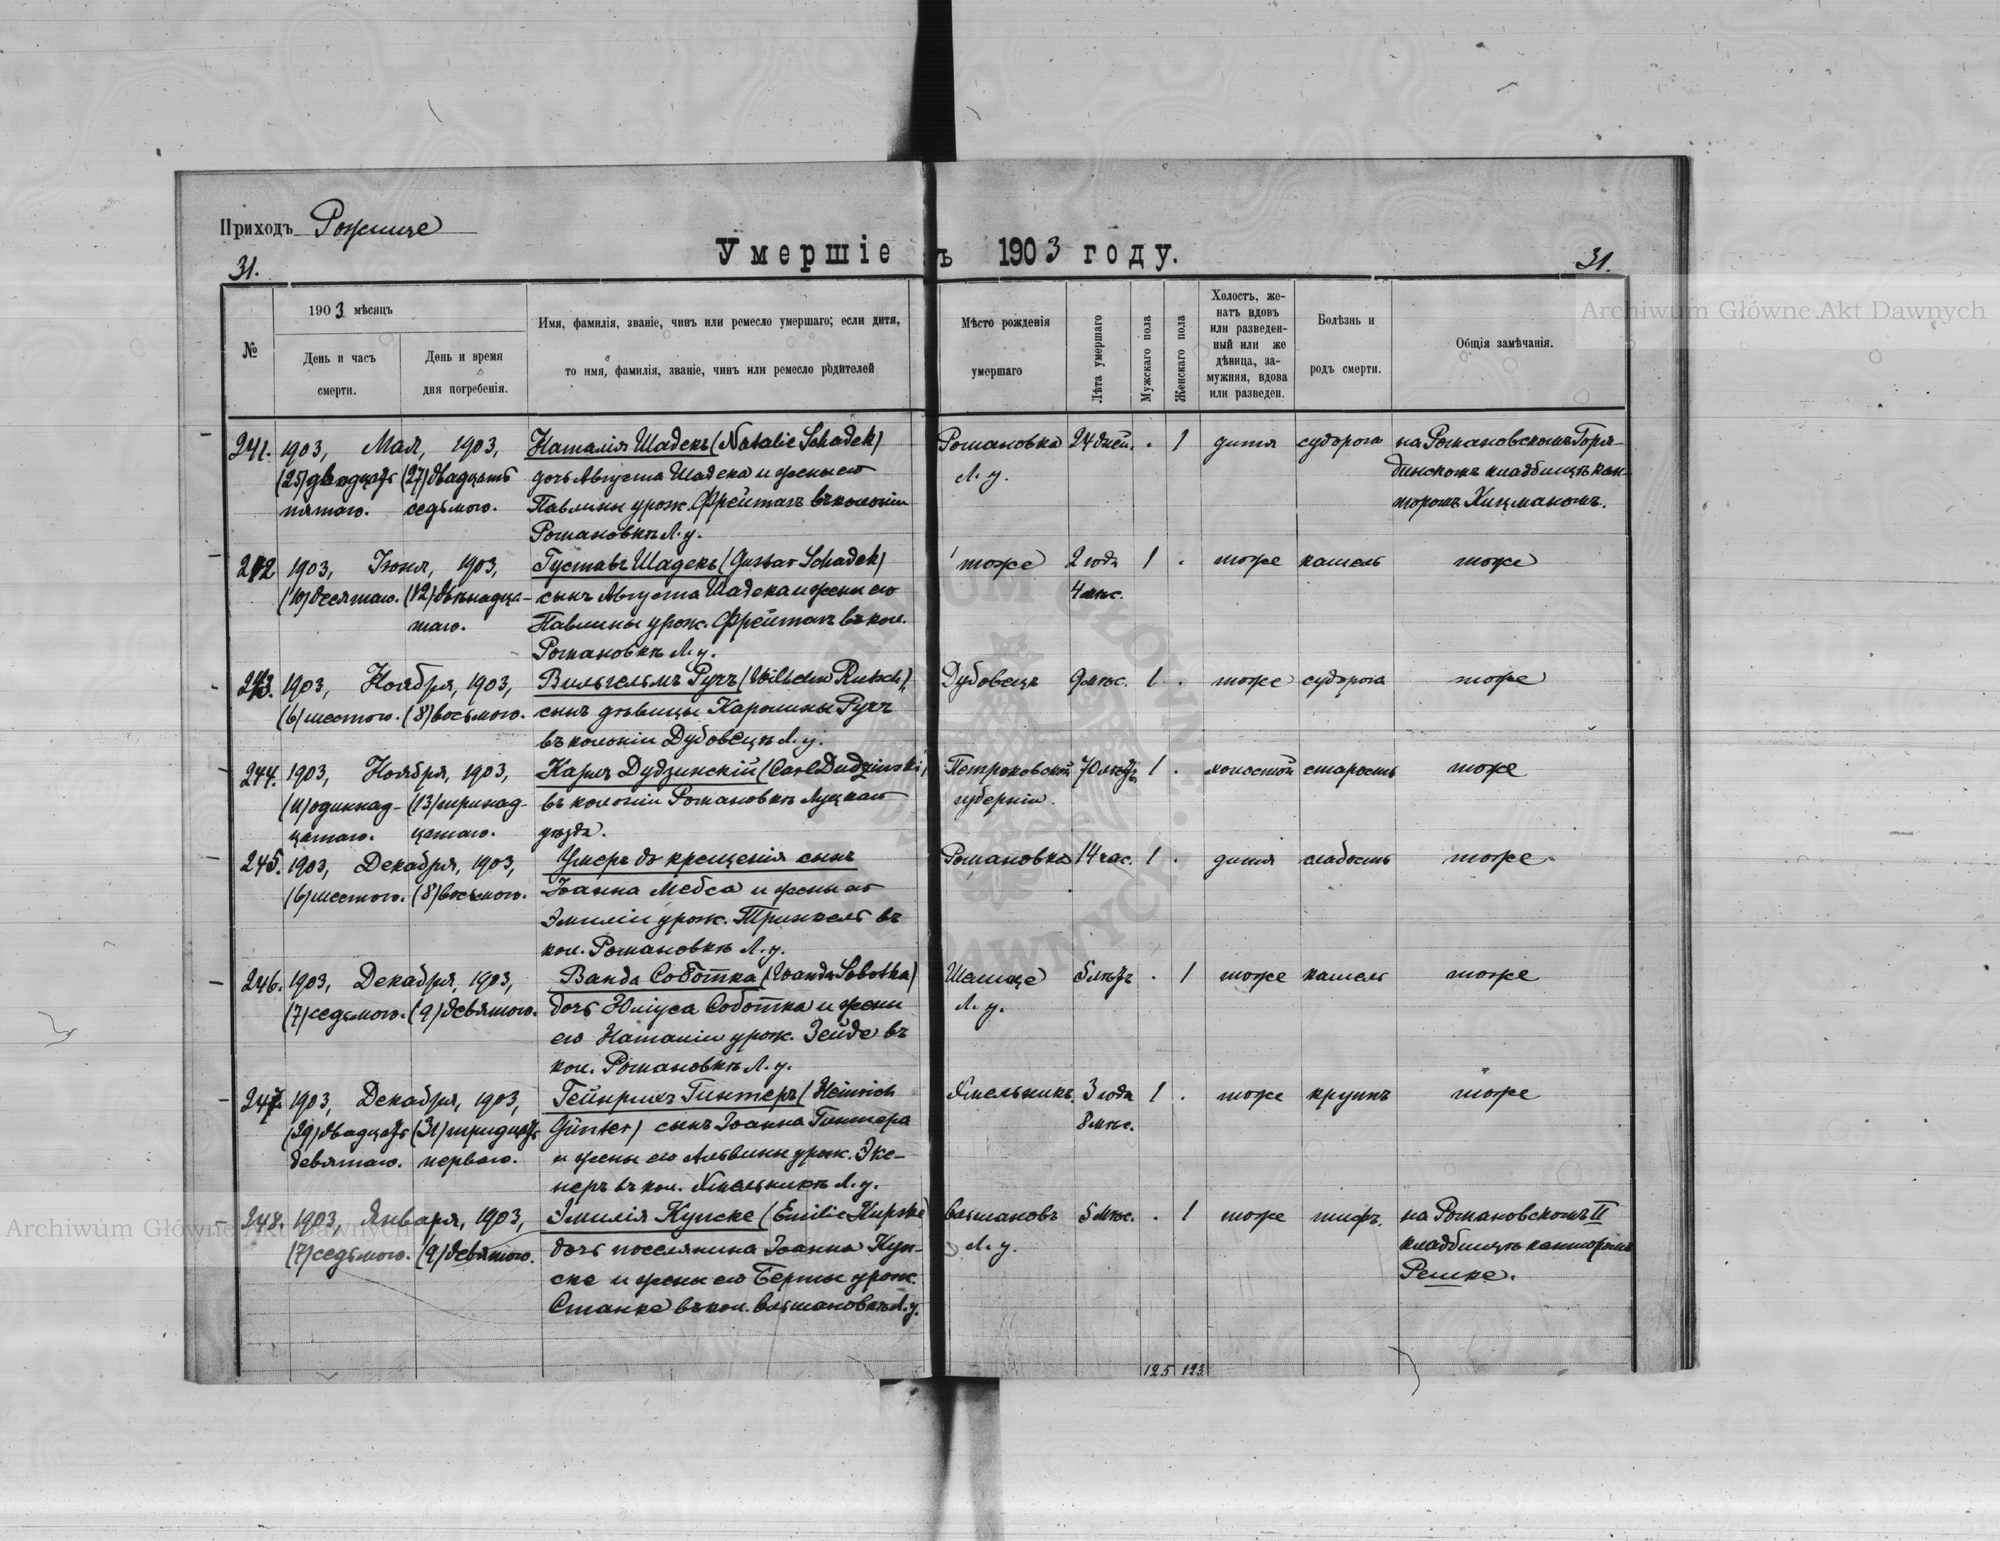 Приходъ Рожище
Умершіе ъ 1903 году.
31.
31.
№
1903 мѣсяцъ
День и часъ смерти.
День и время дня погребенія.
Имя, фамилія, званіе, чинъ или ремесло умершаго; если дитя,
то имя, фамилія, званіе, чинъ или ремесло родителей
Мѣсто рожденія
умершаго
Лѣта умершаго
Мужскаго пола
Женскаго пола
Холостъ, же-
натъ вдовъ
или разведен-
ный или же
дѣвица, за-
мужняя, вдова
или разведен.
Болѣзнь и
родъ смерти.
Общія замѣчанія.
241. 1903, Мая, 1903, Наталія Шадекъ (Natalie Schadek) Романовка 24 дней. . 1 дитя судорога на Романовскомъ Горя-
(25) двадцать (27) двадцать дочь Августа Шадека и жены его Л. у. динскомъ кладбищѣ кан-
пятаго. седьмого. Павлины урож. Фрейтагъ въ колоніи торомъ Кицманомъ.
Романовкѣ Л. у.
242 1903, Іюня, 1903, Густавъ Шадекъ (Gustav Schadek) тоже 2 года 1 . тоже кашель тоже
(10) десятаго. (12) двѣнадца- сынъ Августа Шадека и жены его 4 мѣс.
таго. Павлины урож. Фрейтагъ въ кол.
Романовкѣ Л. у.
243. 1903, Ноября, 1903, Вильгельмъ Рутъ (Wilhelm Rutsch), Дубовецъ 9 мѣс. 1 . тоже судорога тоже
(6) шестого. (8) восьмого. сынъ дѣвицы Каролины
въ колоніи Дубовецъ Л. у.
244. 1903, Ноября, 1903, Карлъ Дудзинскій (Carl Dudzinski) Петроковской 70 лѣтъ 1 . холостой старость тоже
(11) одиннад- (13) тринад- въ колоніи Романовкѣ Луцкаго губерніи.
цатаго. цатаго. уѣзда.
245. 1903, Декабря, 1903, Умеръ до крещенія сынъ Романовка 14 час. 1 . дитя слабость тоже
(6) шестого. (8) восьмого. Іоанна Мебса и жены его
Эмиліи урож. Тринкель въ
кол. Романовкѣ Л. у.
246. 1903, Декабря, 1903, Ванда Соботка (Wanda Sobotka) Л. у. 5 лѣтъ . 1 тоже кашель тоже
(7) седьмого. (9) девятого. дочь Юліуса Соботка и жены
его Наталіи урож. Зейде въ
кол. Романовкѣ Л. у.
247. 1903, Декабря, 1903, Гейнрихъ Гинтеръ (Heinrich Хмельникъ. 3 года 1 . тоже крупъ тоже
(29) двадцать (31) тридцать Günter) сынъ Іоанна Гинтера 8 мѣс.
девятаго. перваго. и жены его Альвины урож. Экс-
неръ въ кол. Хмельникѣ Л. у.
248. 1903, Января, 1903, Эмилія Купске (Emilie Kupske) 5 мѣс. . 1 тоже тифъ. на Романовскомъ II
(7) седьмого. (9) девятого. дочь поселянина Іоанна Куп- Л. у. кладбищѣ канторомъ
ске и жены его Берты урож. Решке.
Станке въ кол. Л. у.
125 123
Archiwum Główne Akt Dawnych
Archiwum Główne Akt Dawnych